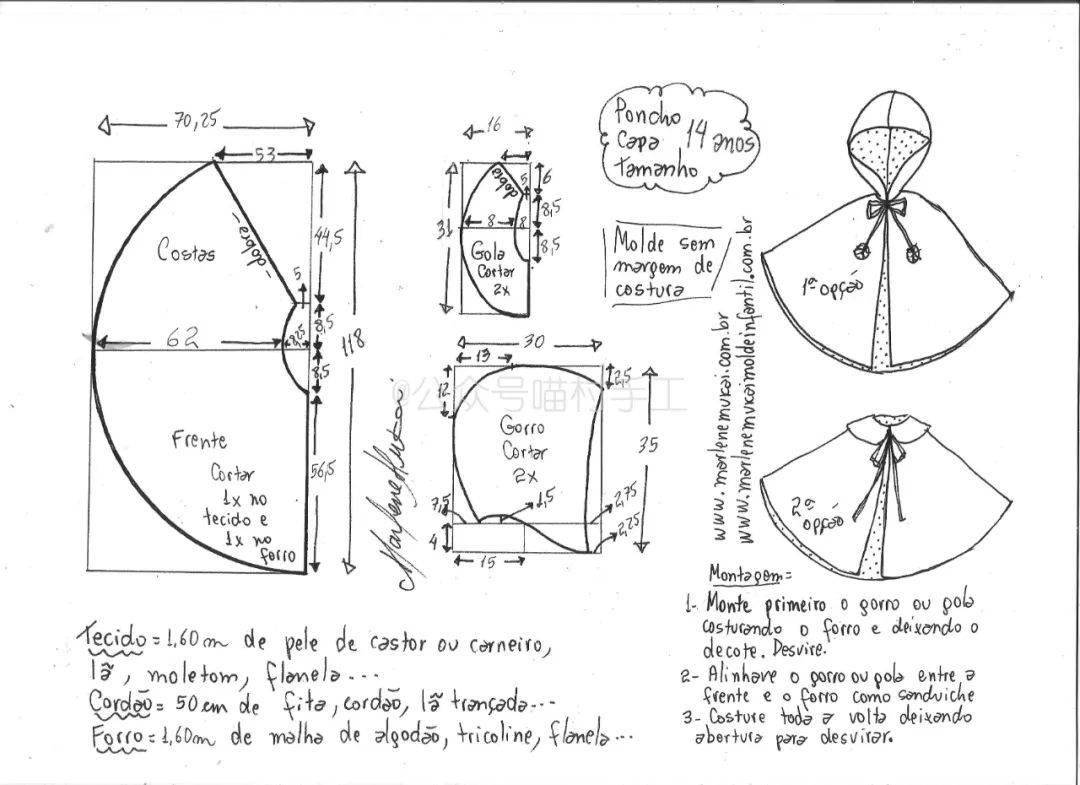 70,25
53
Costas
-dobra-
5
44,5
8,5
8,25
62
118
8,5
Frente
Cortar
1x no
tecido e
1x no
forro
56,5
16
5
6
dobra
8,5
31
8
8
8,5
Gola
Cortar
2x
30
13
2,5
12
Gorro
Cortar
2x
35
7,5
1,5
2,75
4
2,25
15
Poncho
Capa 14 anos
Tamanho
Molde sem
margem de
costura
Marlene Mukai
@公众号喵村手工
www.marlenemukai.com.br
www.marlenemukaimoldeinfantil.com.br
1ª opção
2ª
opção
Tecido = 1,60m de pele de castor ou carneiro,
lã, moletom, flanela...
Cordão = 50cm de fita, cordão, lã trançada...
Forro = 1,60m de malha de algodão, tricoline, flanela...
Montagem =
1- Monte primeiro o gorro ou gola
costurando o forro e deixando o
decote. Desvire.
2- Alinhave o gorro ou gola entre a
frente e o forro como sanduiche
3- Costure toda a volta deixando
abertura para desvirar.